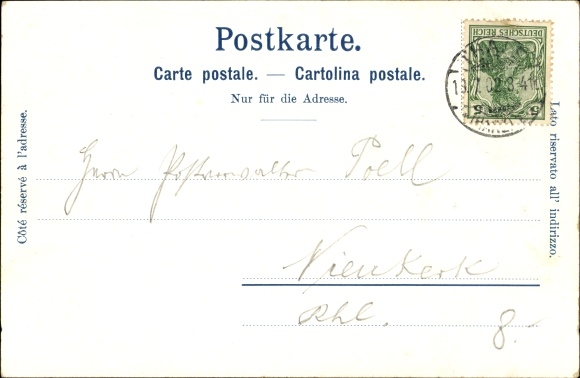 Postkarte.
Carte postale. — Cartolina postale.
Nur für die Adresse.
Côté réservé à l'adresse.
Lato riservato all' indirizzo.
DEUTSCHES REICH
5 5
Herrn Postverwalter Poell
Nienkerk
Rhl.
8.